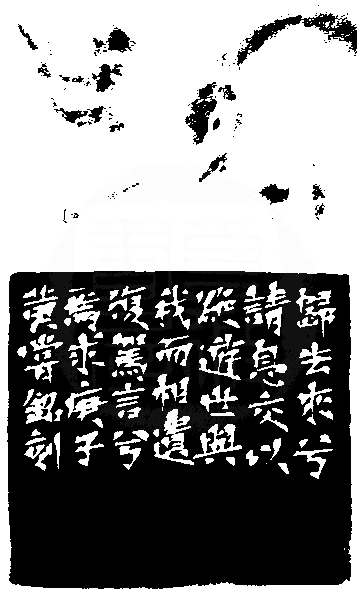 歸去來兮
請息交以
絕遊世與
我而相遺
復駕言兮
焉求庚子
黃嘗銘刻